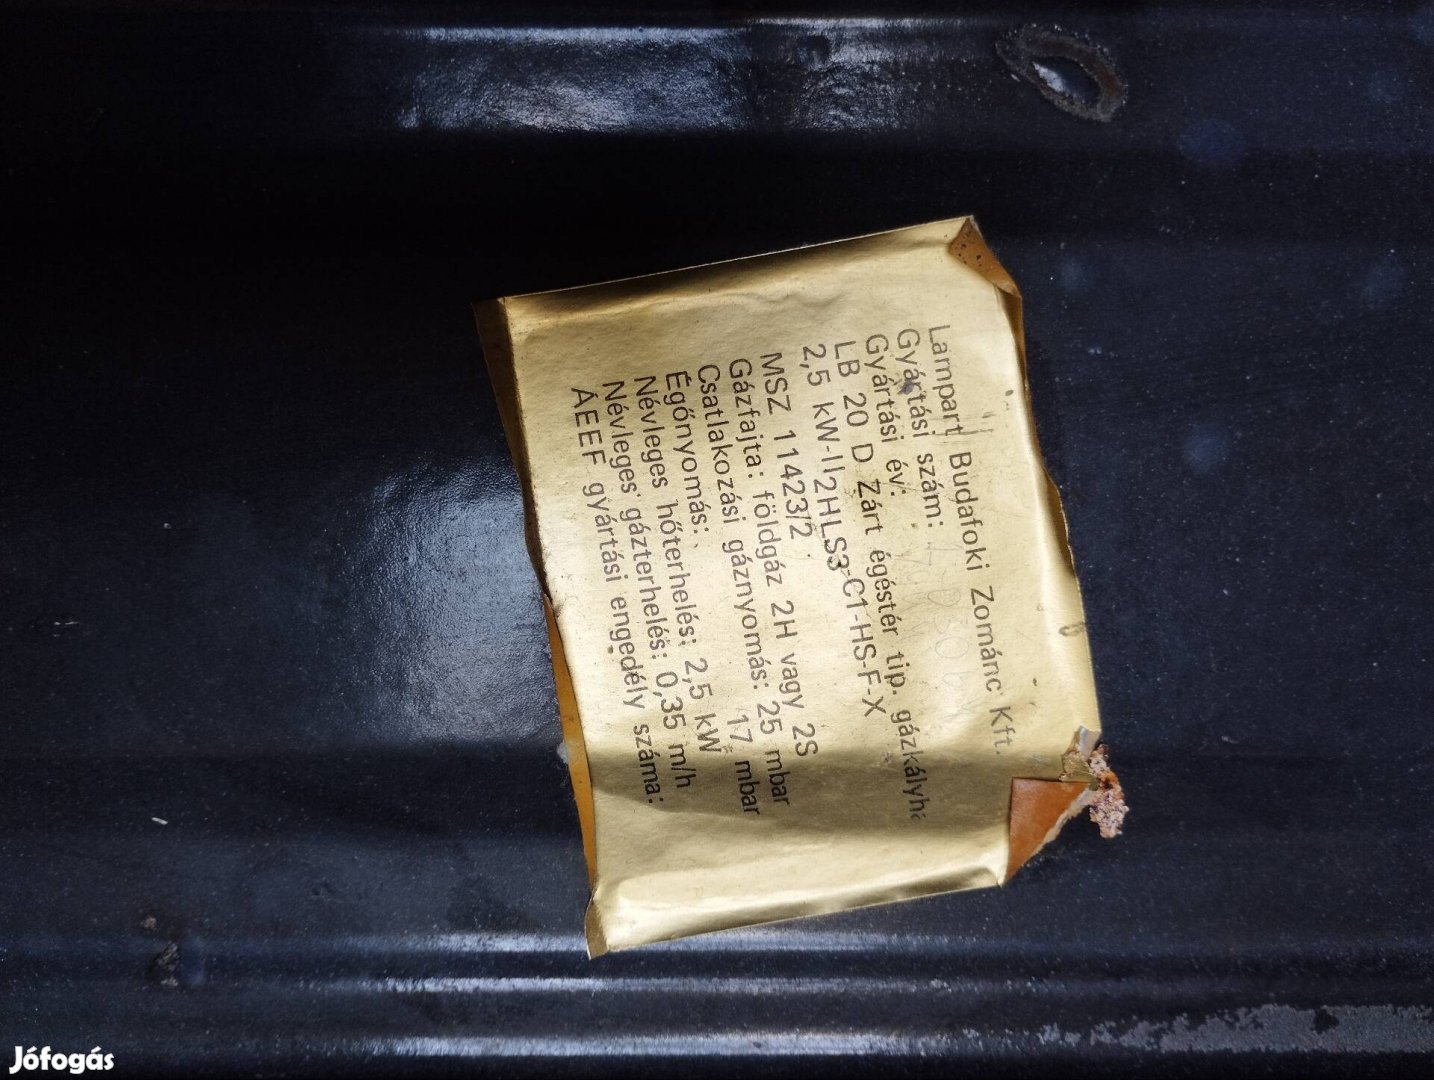 Lampart Budafoki Zománc Kft.
Gyártási szám:
Gyártási év:
LB 20 D Zárt égéstér tip. gázkályha
2,5 kW-II2HLS3-C1-HS-F-X
MSZ 11423/2
Gázfajta: földgáz 2H vagy 2S
Csatlakozási gáznyomás: 25 mbar
Égőnyomás: 17 mbar
Névleges hőterhelés: 2,5 kW
Névleges gázterhelés: 0,35 m/h
ÁEEF gyártási engedély száma:
Jófogás